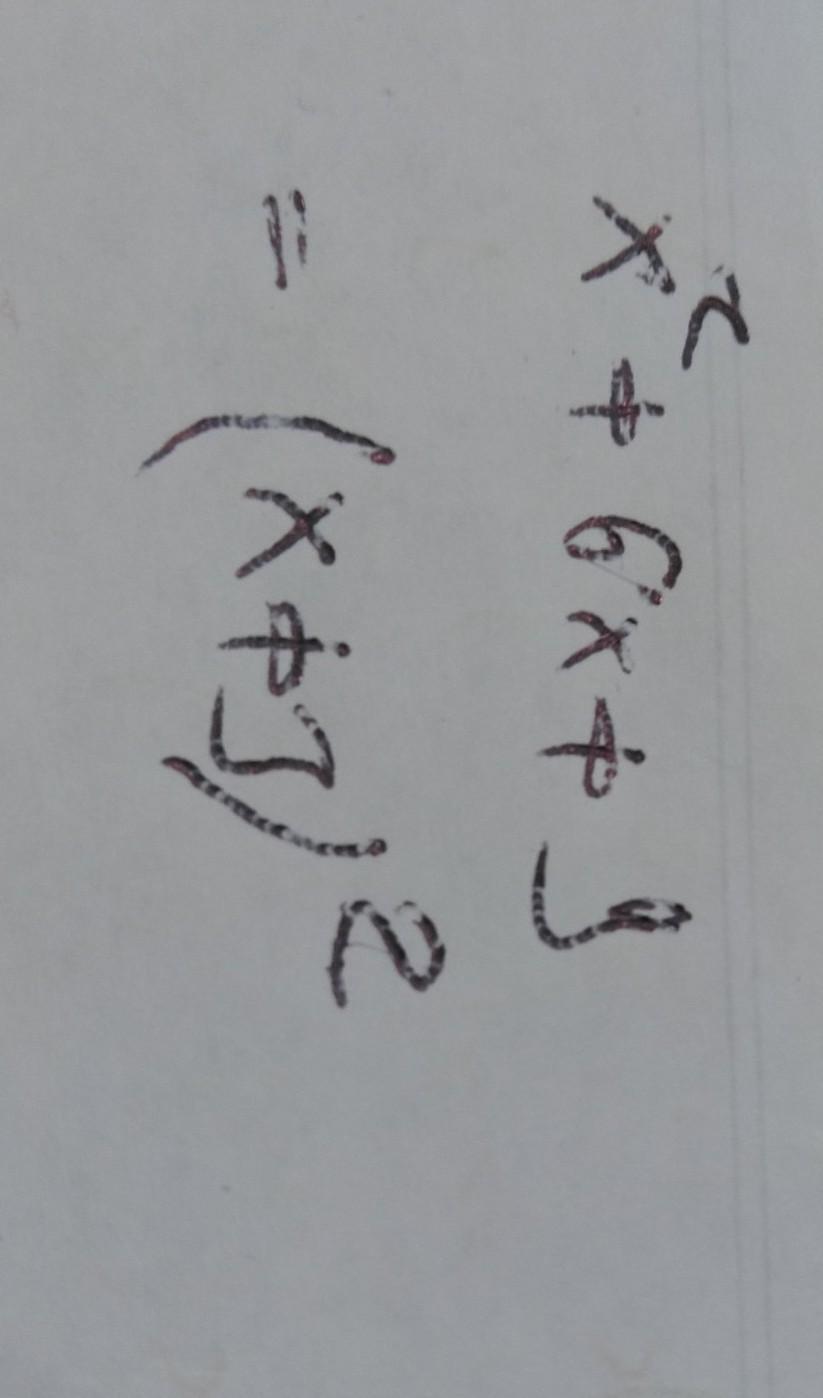 x² + 6x + 9
= (x+3)²